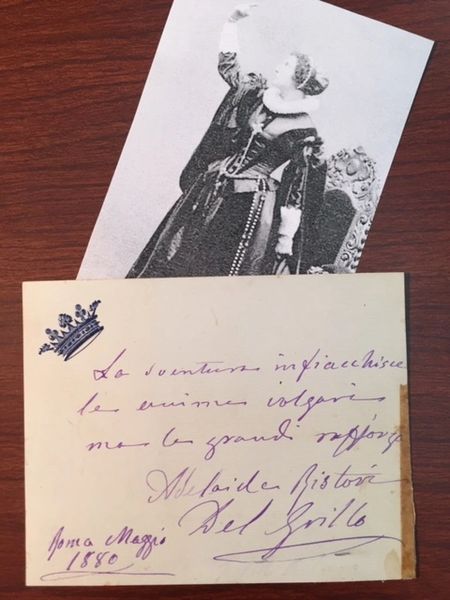 La sventura infiacchisce
le anime volgari
ma le grandi rafforza
Adelaide Ristori
Del Grillo
Roma Maggio
1880